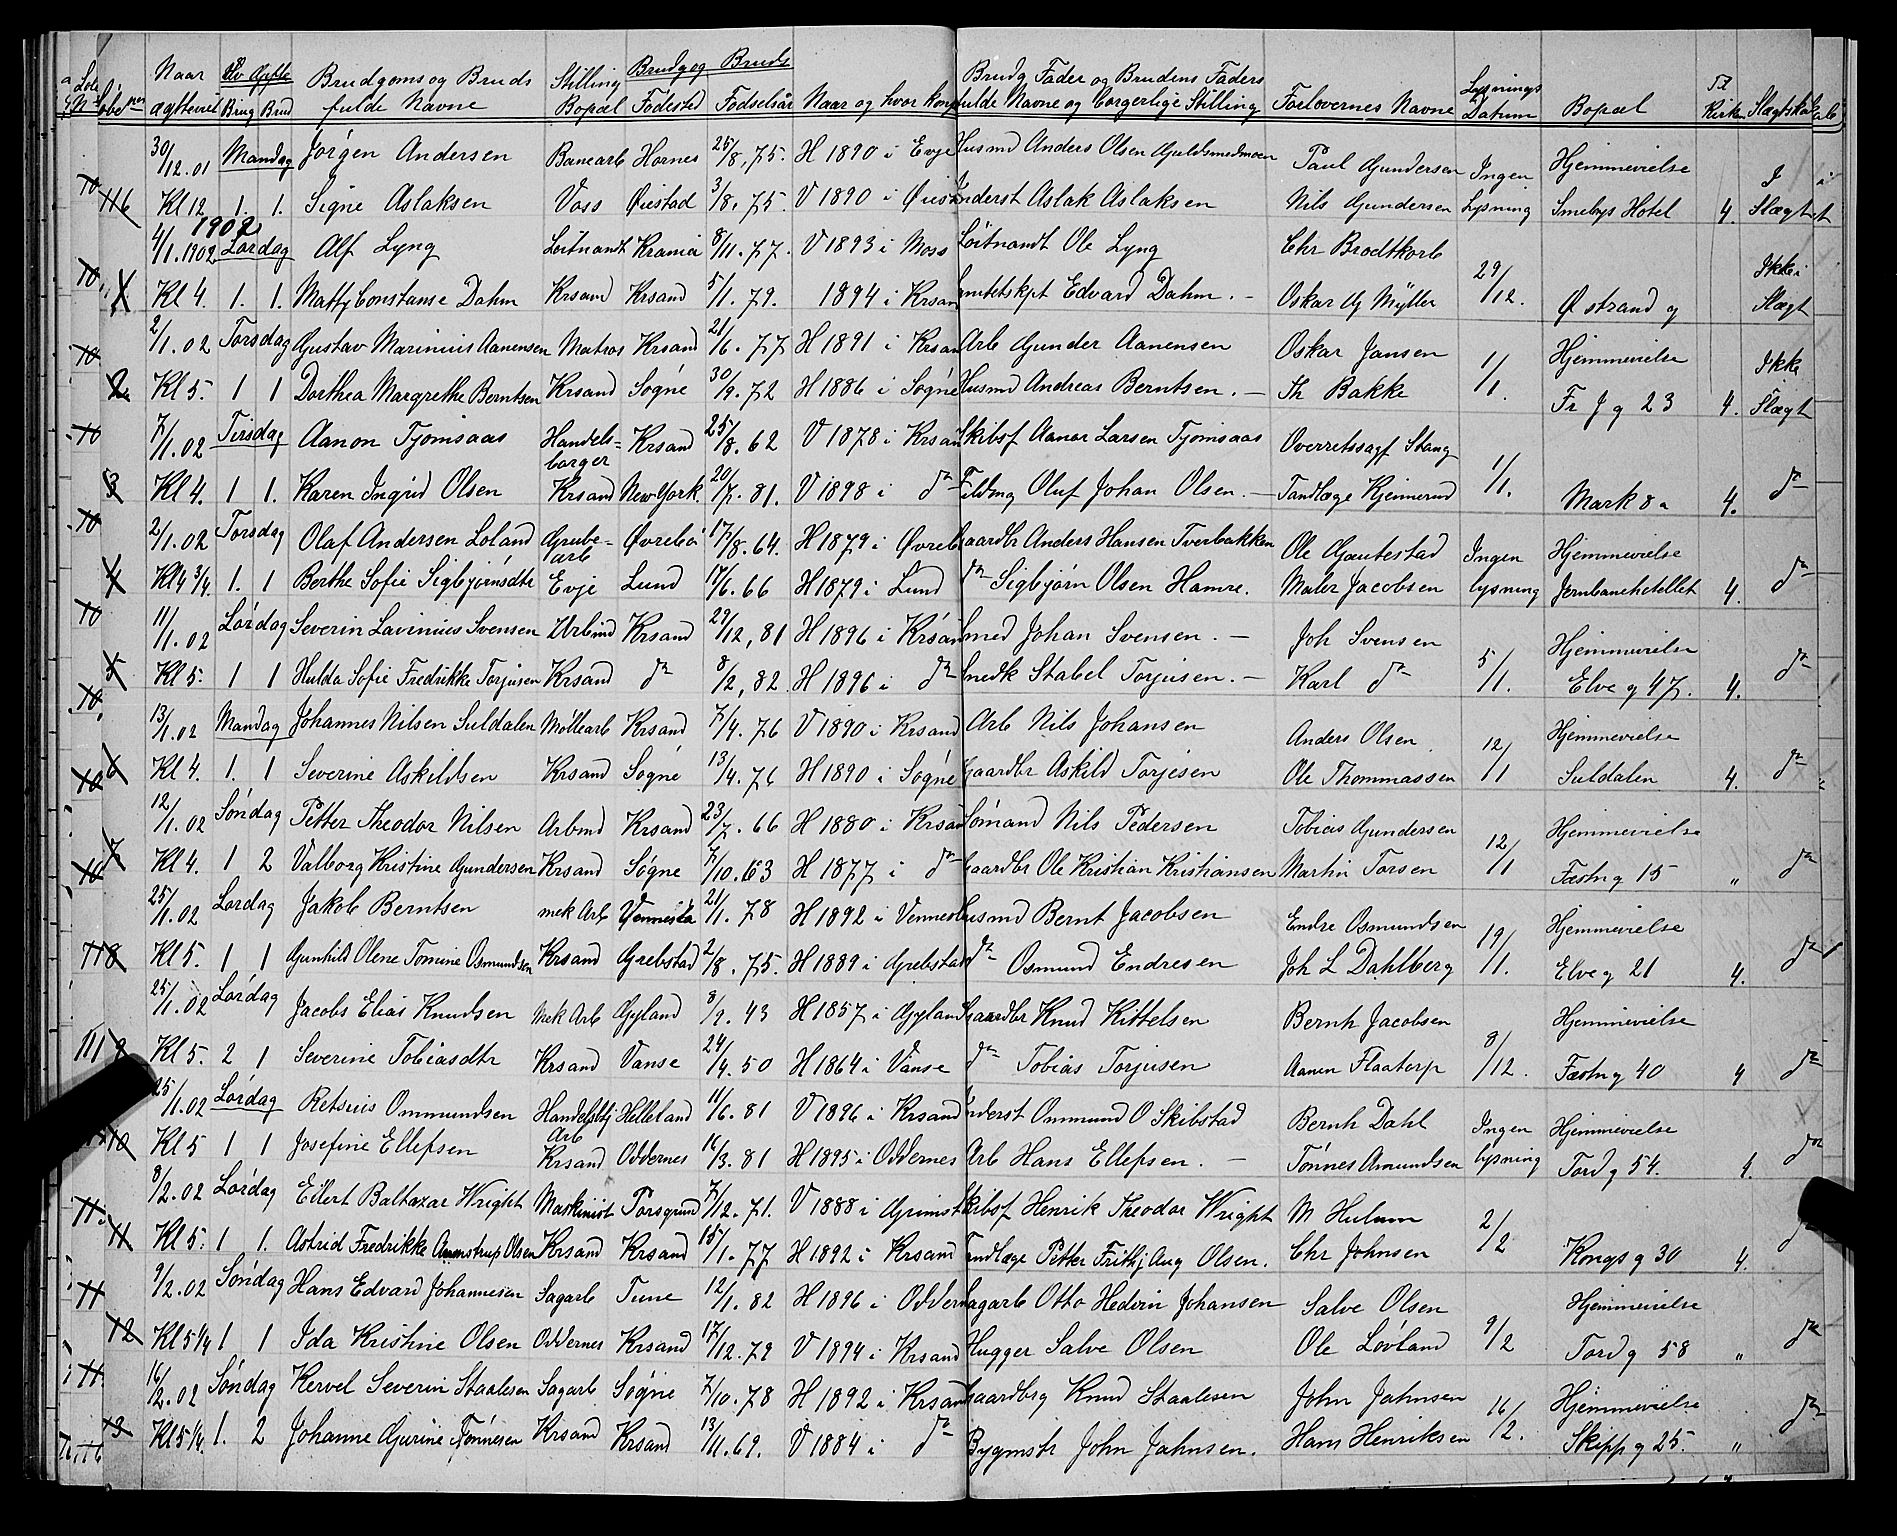 Naar Av Gifte Brudgoms og Bruds Stilling Brudg og Bruds Brudg Fader og Brudens Faders Lysnings Til
ægteviet Brug Brud fulde Navne Bopæl Fødested Fødselsår Naar og hvor konf fulde Navne og borgerlige Stilling Forlovernes Navne Datum Bopæl Kirken Slægtskab
30/12.01 Mandag Jørgen Andersen Banearb Hornes 25/8.75. H 1890 i Evje Husmd Anders Olsen Guldsmedmoen Paul Gundersen Ingen Hjemmevielse I
116 Kl 12 1. 1. Signe Aslaksen Voss Øiestad 3/8.75. V 1890 i Øiest Inderst Aslak Aslaksen Nils Gundersen Lysning Smebys Hotel 4. Slægt
1902
4/1.1902 Lørdag Alf Lyng Løitnandt Krania 8/11.77. V 1893 i Moss Løitnandt Ole Lyng Chr Brodtkorb 29/12. Ikke i
1 Kl 4. 1. 1. Matty Constanse Dahm Krsand Krsand 5/1.79. 1894 i Krsan Edvard Dahm. – Oskar Og Myller Ø strand g Slægt
2/1.02 Torsdag Gustav Marinius Aanensen Matros Krsand 21/6.77 H 1891 i Krsan Arb Gunder Aanensen Oskar Jansen 1/1. Hjemmevielse Ikke
2 Kl 5. 1 1 Dorthea Margrethe Berntsen Krsand Søgne 30/9.72 H 1886 i Søgne Husmd Andreas Berntsen. – Th Bakke Fr J g 23 4. Slægt
7/1.02 Tirsdag Aanon Tjomsaas Handels-borger Krsand 25/8.62 V 1878 i Krsan Skibsf Aanon Larsen Tjomsaas Overretssagf Stang 1/1.
3 Kl 4. 1 1. Karen Ingrid Olsen Krsand New York. 20/7.81. V 1898 i do Oluf Johan Olsen. – Tandlæge Kjennerud Mark 8a 4. do
2/1.02 Torsdag Olaf Andersen Loland Grube-arb Øvrebø 17/8.64. H 1879 i Øvreb Gaardbr Anders Hansen Tverbakken Ole Gautestad Ingen Hjemmevielse
4 Kl 4 3/4. 1. 1 Berthe Sofie Sigbjørnsdtr Evje Lund 17/6.66 H 1879 i Lund do Sigbjørn Olsen Hamre. Maler Jacobsen lysning Jernbanehotellet 4. do
11/1.02 Lørdag Severin Lavinius Svensen Arbmd Krsand 29/12,81 H 1896 i Krsan Smed Johan Svensen. – Joh Svensen 5/1. Hjemmevielse
5 Kl 5. 1 1 Hulda Sofie Fredrikke Torjusen Krsand do 8/2,82 H 1896 i do Snedk Stabel Torjusen. – Karl do Elve g 47. 4. do
13/1.02 Mandag Johannes Nilsen Suldalen Møllearb Krsand 7/4.76 V 1890 i Krsand Arb Nils Johansen Anders Olsen 12/1 Hjemmevielse
6 Kl 4. 1. 1 Severine Askildsen Krsand Søgne 13/4.76 H 1890 i Søgne Gaardbr Askild Torjesen Ole Thommassen Suldalen 4. do
12/1.02 Søndag Petter Theodor Nilsen Arbmd Krsand 23/7.66 H 1880 i Krsan Sømand Nils Pedersen Tobias Gundersen 12/1 Hjemmevielse
7 Kl 4. 1 2 Valborg Kristine Gundersen Krsand Søgne 7/10.63 H 1877 i do Gaardbr Ole Kristian Kristiansen Martin Torsen Fæstn g 15 " do
25/1.02 Lørdag Jakob Berntsen mek Arb Vennesla 21/1.78 H 1892 i Vennesl Husmd Bernt Jacobsen Endre Osmundsen 19/1. Hjemmevielse
8 Kl 5. 1 1 Gunhild Olene Tomine Osmundsen Krsand Grebstad 2/8.75. H 1889 i Grebstad do Osmund Endresen Joh L Dahlberg Elve g 21 4. do
25/1.02 Lørdag Jacobs Elias Knudsen Mek Arb Gyland 8/9.43 H 1857 i Gyland Gaardbr Knud Kittelsen Bernh Jacobsen 8/12. Hjemmevielse
9 Kl 5. 2 1 Severine Tobiasdtr Krsand Vanse 24/4.50 H 1864 i Vanse do Tobias Torjusen Aanen Flaatorp Fæstn g 40 4 do
25/1.02 Lørdag Retsius Ommundsen Handelsbtj Helleland 11/6.81 V 1896 i Krsand Inderst Ommund O Skibstad Bernh Dahl Ingen Hjemmevielse
10 Kl 5 1 1 Josefine Ellefsen Arb Krsand Oddernes 16/3.81 H 1895 i Oddernes Arb Hans Ellefsen. – Tønnes Amundsen lysning Tord g 54. 4. do
8/2.02 Lørdag Eilert Baltazar Wright Maskinist Porsgrund 7/12.71. V 1888 i Grimst Skibsf Henrik Theodor Wright M Hulum 2/2
11 Kl 5. 1 1. Astrid Fredrikke Olsen Krsand Krsand 15/1.77 H 1892 i Krsand Tandlæge Petter Frithj Aug Olsen. Chr Johnsen Kongs g 30 4.
9/2.02 Søndag Hans Edvard Johannesen Sagarb Tune 12/1.82 H 1896 i Oddern Sagarb Otto Hedvin Johansen Salve Olsen 9/2 Hjemmevielse
12 Kl 5 1/4 1 1 Ida Kristine Olsen Oddernes Krsand 17/12.79 V 1894 i Krsand Hugger Salve Olsen Ole Løvland Tord g 58 " do
16/2.02 Søndag Kervel Severin Staalesen Sagarb Søgne 7/10.78 H 1892 i Krsan Gaardbrg Knud Staalesen John Jahnsen 16/2. Hjemmevielse
13 Kl 5 1/4. 1. 2 Johanne Gurine Tønnesen Krsand Krsand 13/11.69. V 1884 i do Bygmstr John Jahnsen. Hans Henriksen Skipp g 25. " do